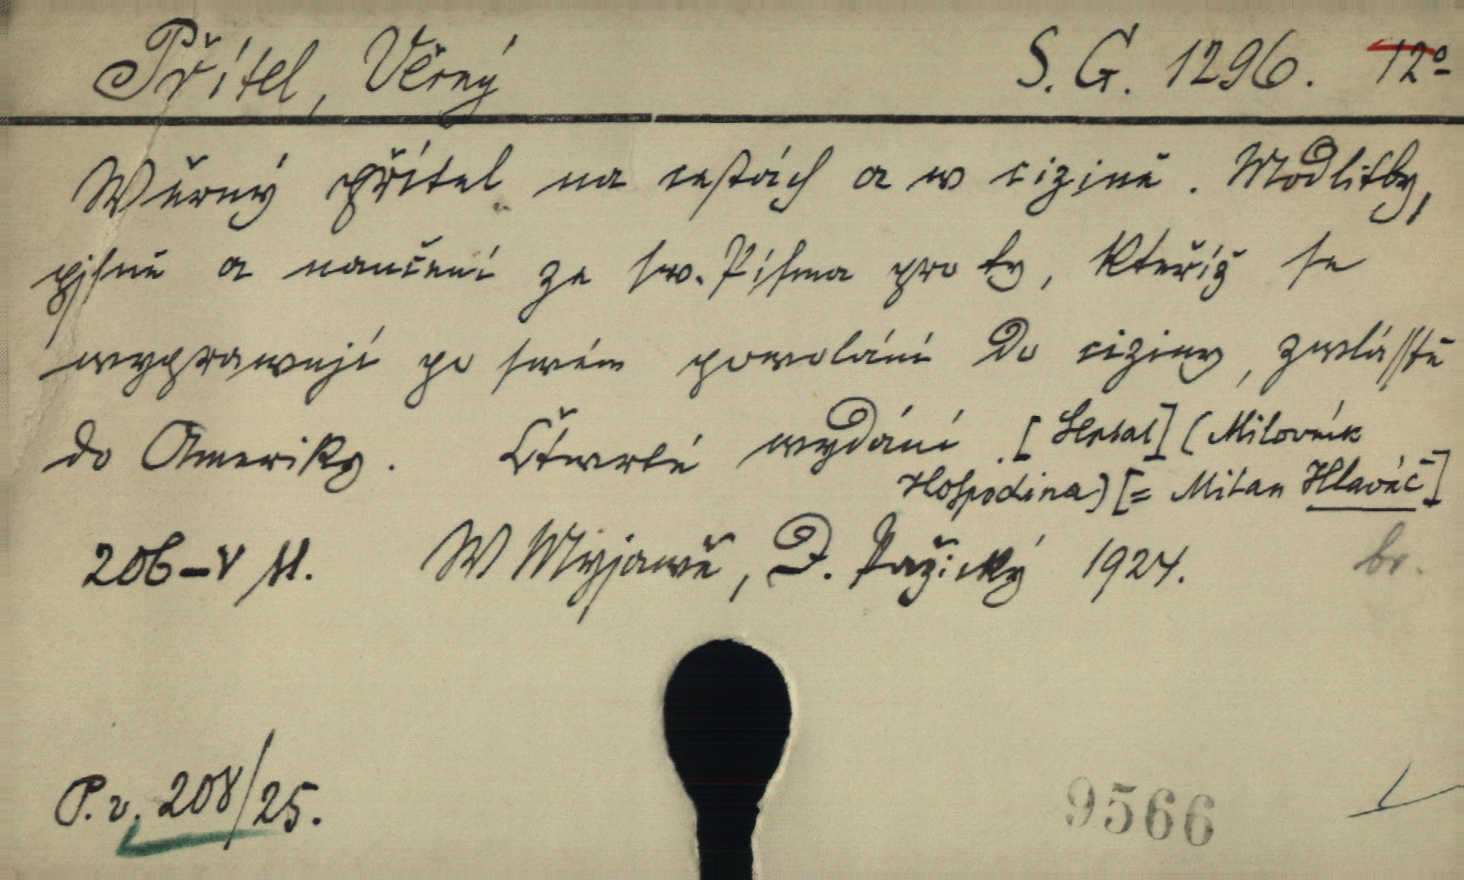 Přítel, Věrný S. G. 1296. 12°
Wěrný přítel na cestách a w cizině. Modlitby,
pjsně a naučení ze sw. Písma pro ty, kteříž se
wyprawují po swém powolání do ciziny, zwlásstě
do Ameriky. Čtwrté wydání. [Sebral] (Milovník
Hospodina) [= Milan Hlaváč]
206-V M. W Myjawě, D. Pažický 1924. br.
P. v. 208/25.
9566